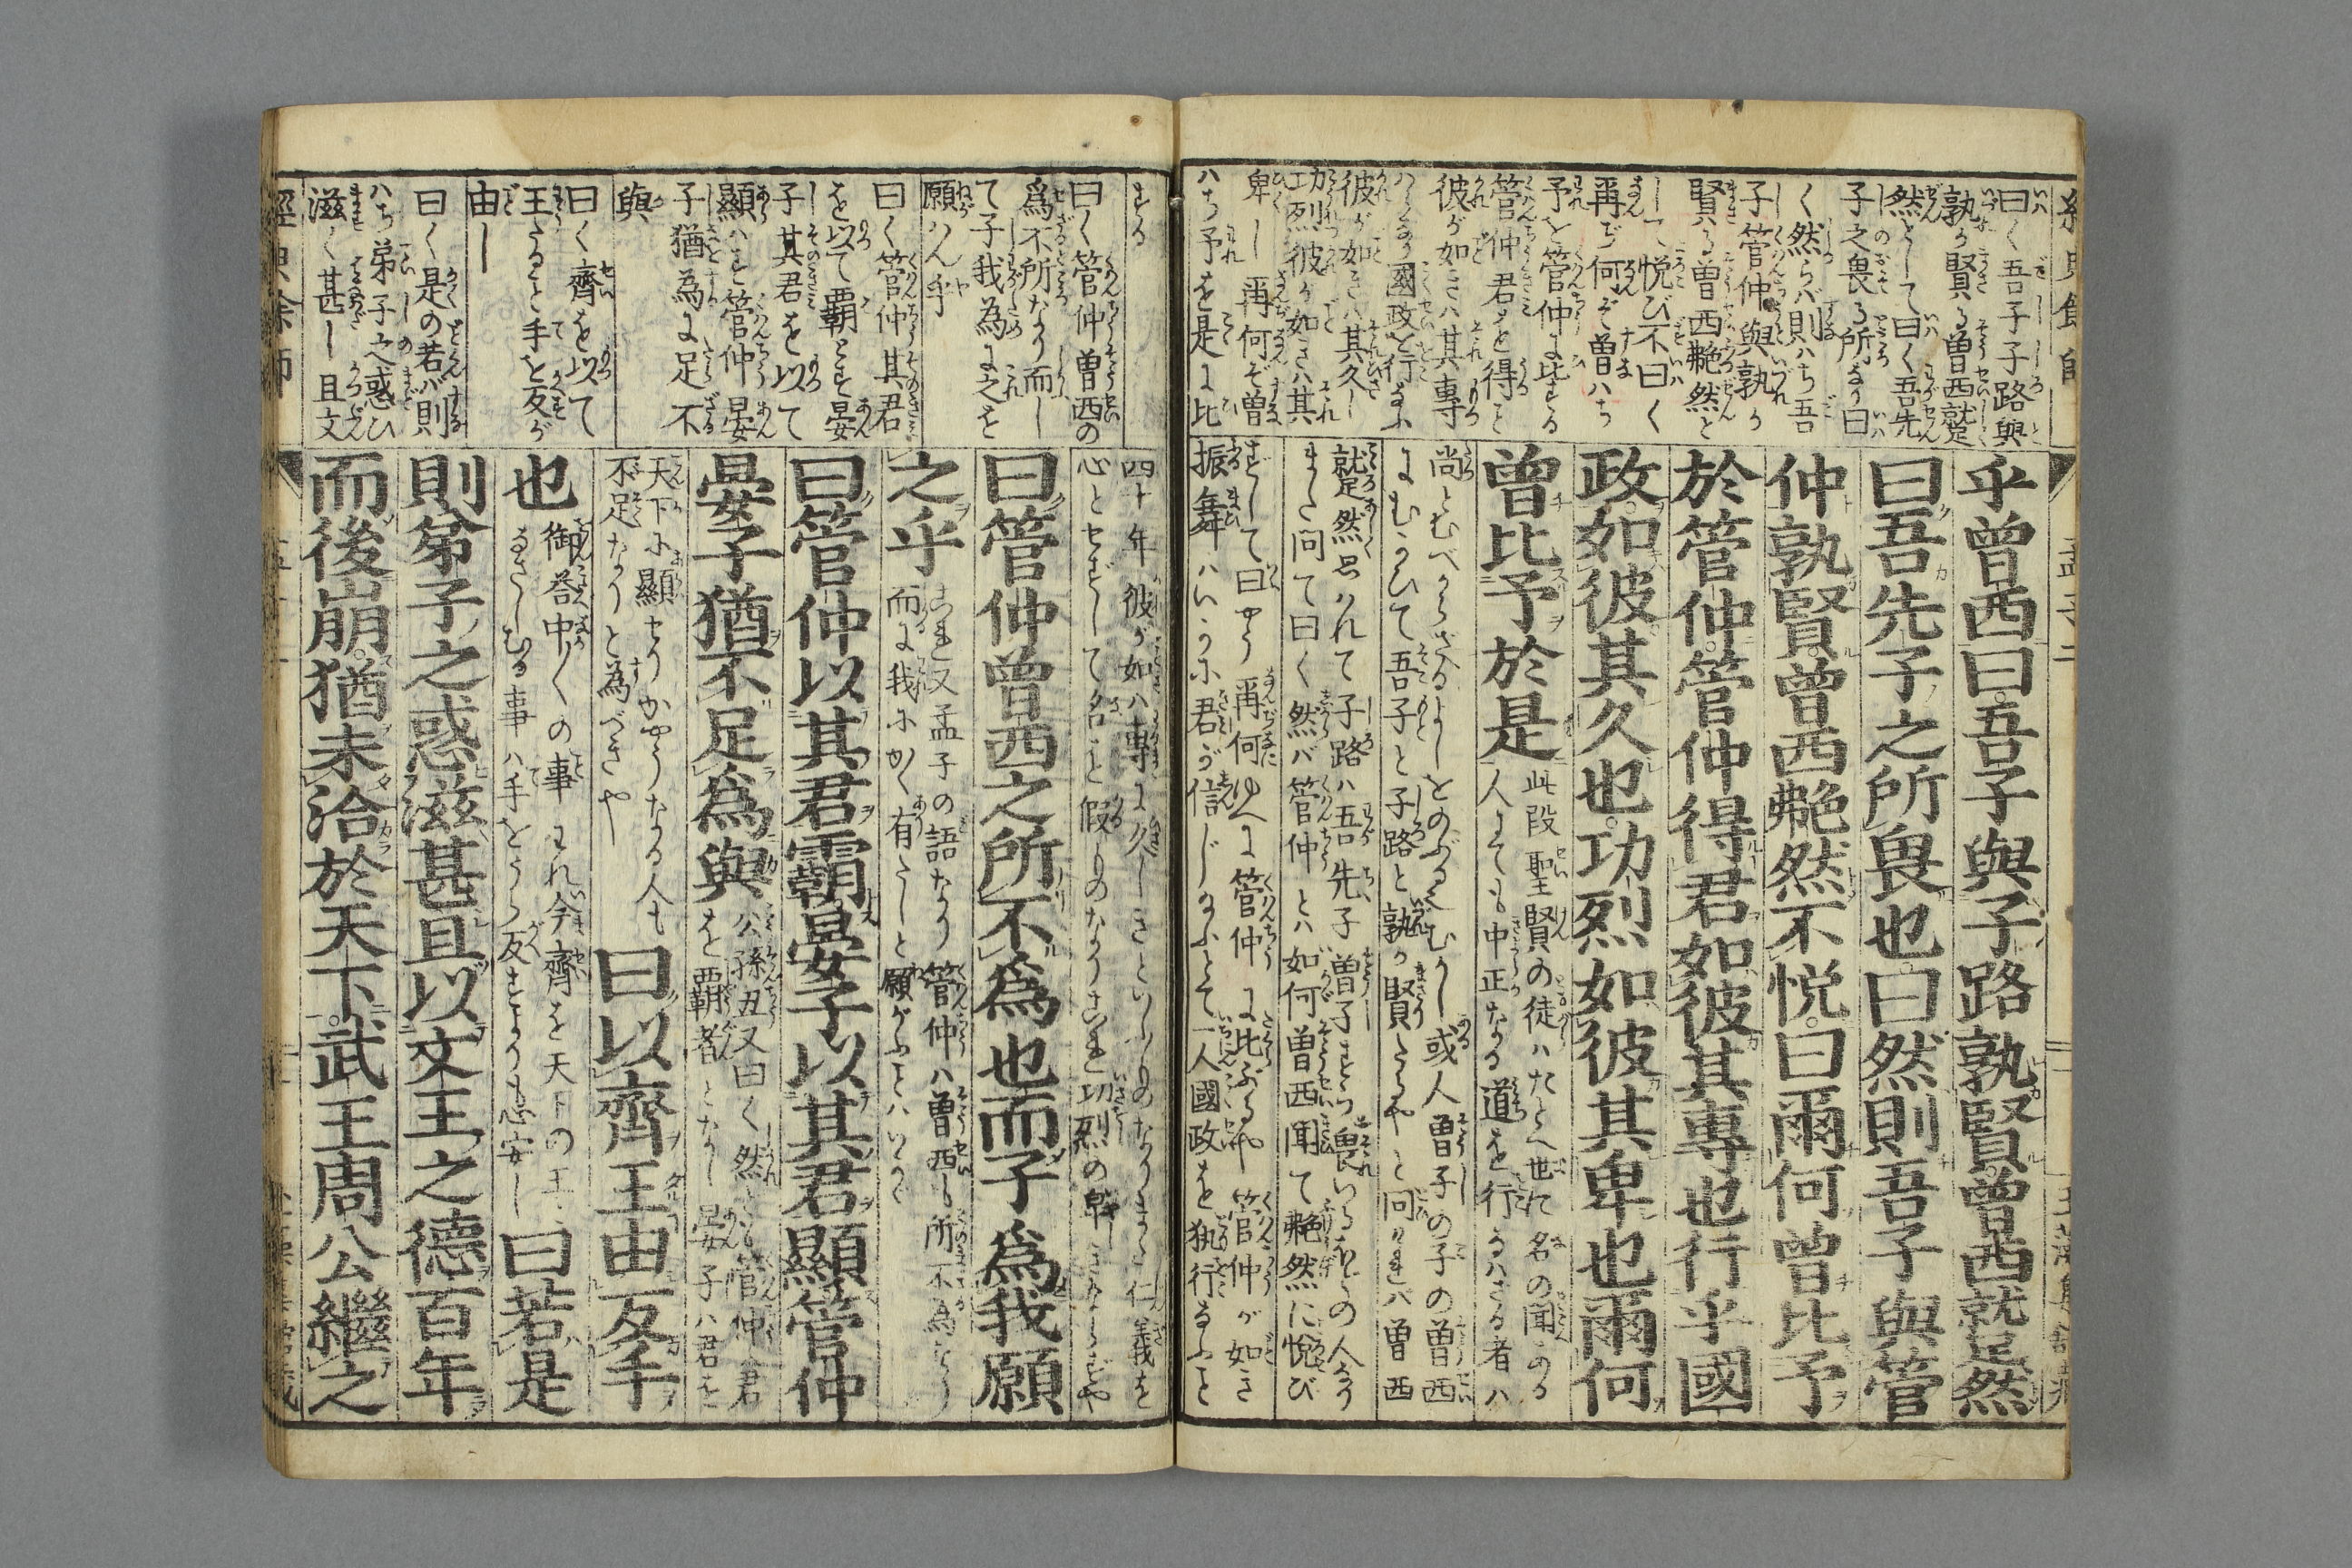 曰く吾子子路與
孰か賢る曾西蹵
然として曰く吾先
子之畏る所なり曰
く然らバ則ハち吾
子管仲與孰か
賢る曾西艴然と
して悦び不曰く
爾ぢ何ぞ曾ハち
予を管仲に比する
管仲君を得こと
彼が如きハ其專
國政を行なふ
彼が如きハ其久し
功烈彼が如きハ其
卑し爾何ぞ曾
ハち予を是に比
乎曾西曰吾子與子路孰賢曾西蹵然
曰吾先子之所畏也曰然則吾子與管
仲孰賢曾西艴然不悦曰爾何曾比予
於管仲管仲得君如彼其專也行乎國
政如彼其久也功烈如彼其卑也爾何
曾比予於是
此段聖賢の徒ハたとへ世に名の聞ある
人にても中正なる道を行なハざる者ハ
尚とむべからざるよしをのぶるむかし或人曾子の子の曾西
にむかひて吾子と子路と孰か賢たるやと問けれバ曾西
蹵然と恐れて子路ハ吾先子曾子すら畏いるほどの人なり
また問て曰く然バ管仲とハ如何曾西聞て艴然に悦び
ずして曰やう爾何ゆへに管仲に比ぶるや管仲が如き
振舞ハいかに君が信じ給ふとて一人國政を執行なふこと
する
曰く管仲曾西の
爲不所なり而し
て子我為に之を
願ハん乎
曰く管仲其君
を以て覇とす晏
子其君を以て
顯ハす管仲晏
子猶為に足不
與
曰く齊を以て
王たること手を反が
由し
曰く是の若バ則
ハち弟子之惑ひ
滋く甚し且文
四十年彼が如ハ專に久しきといふものなりまた仁義を
心とせずして名を假ものなりこれ功烈の卑きならずや
曰管仲曾西之所不爲也而子爲我願
之乎
これ又孟子の語なり管仲ハ曾西も所不為なり
而に我にかく有たしと願がふことハいかが
曰管仲以其君霸晏子以其君顯管仲
晏子猶不足爲與
公孫丑又曰く然らバ管仲君
を覇者となし晏子ハ君を
天下に顯せりかやうなる人も
不足なりと為べきや
曰以齊王由反手
也
御答申しくの事われ今齊を天下の王
なさしむる事ハ手をうら反すよりも心安し
曰若是
則弟子之惑滋甚且以文王之德百年
而後崩猶未洽於天下武王周公繼之
經典余師